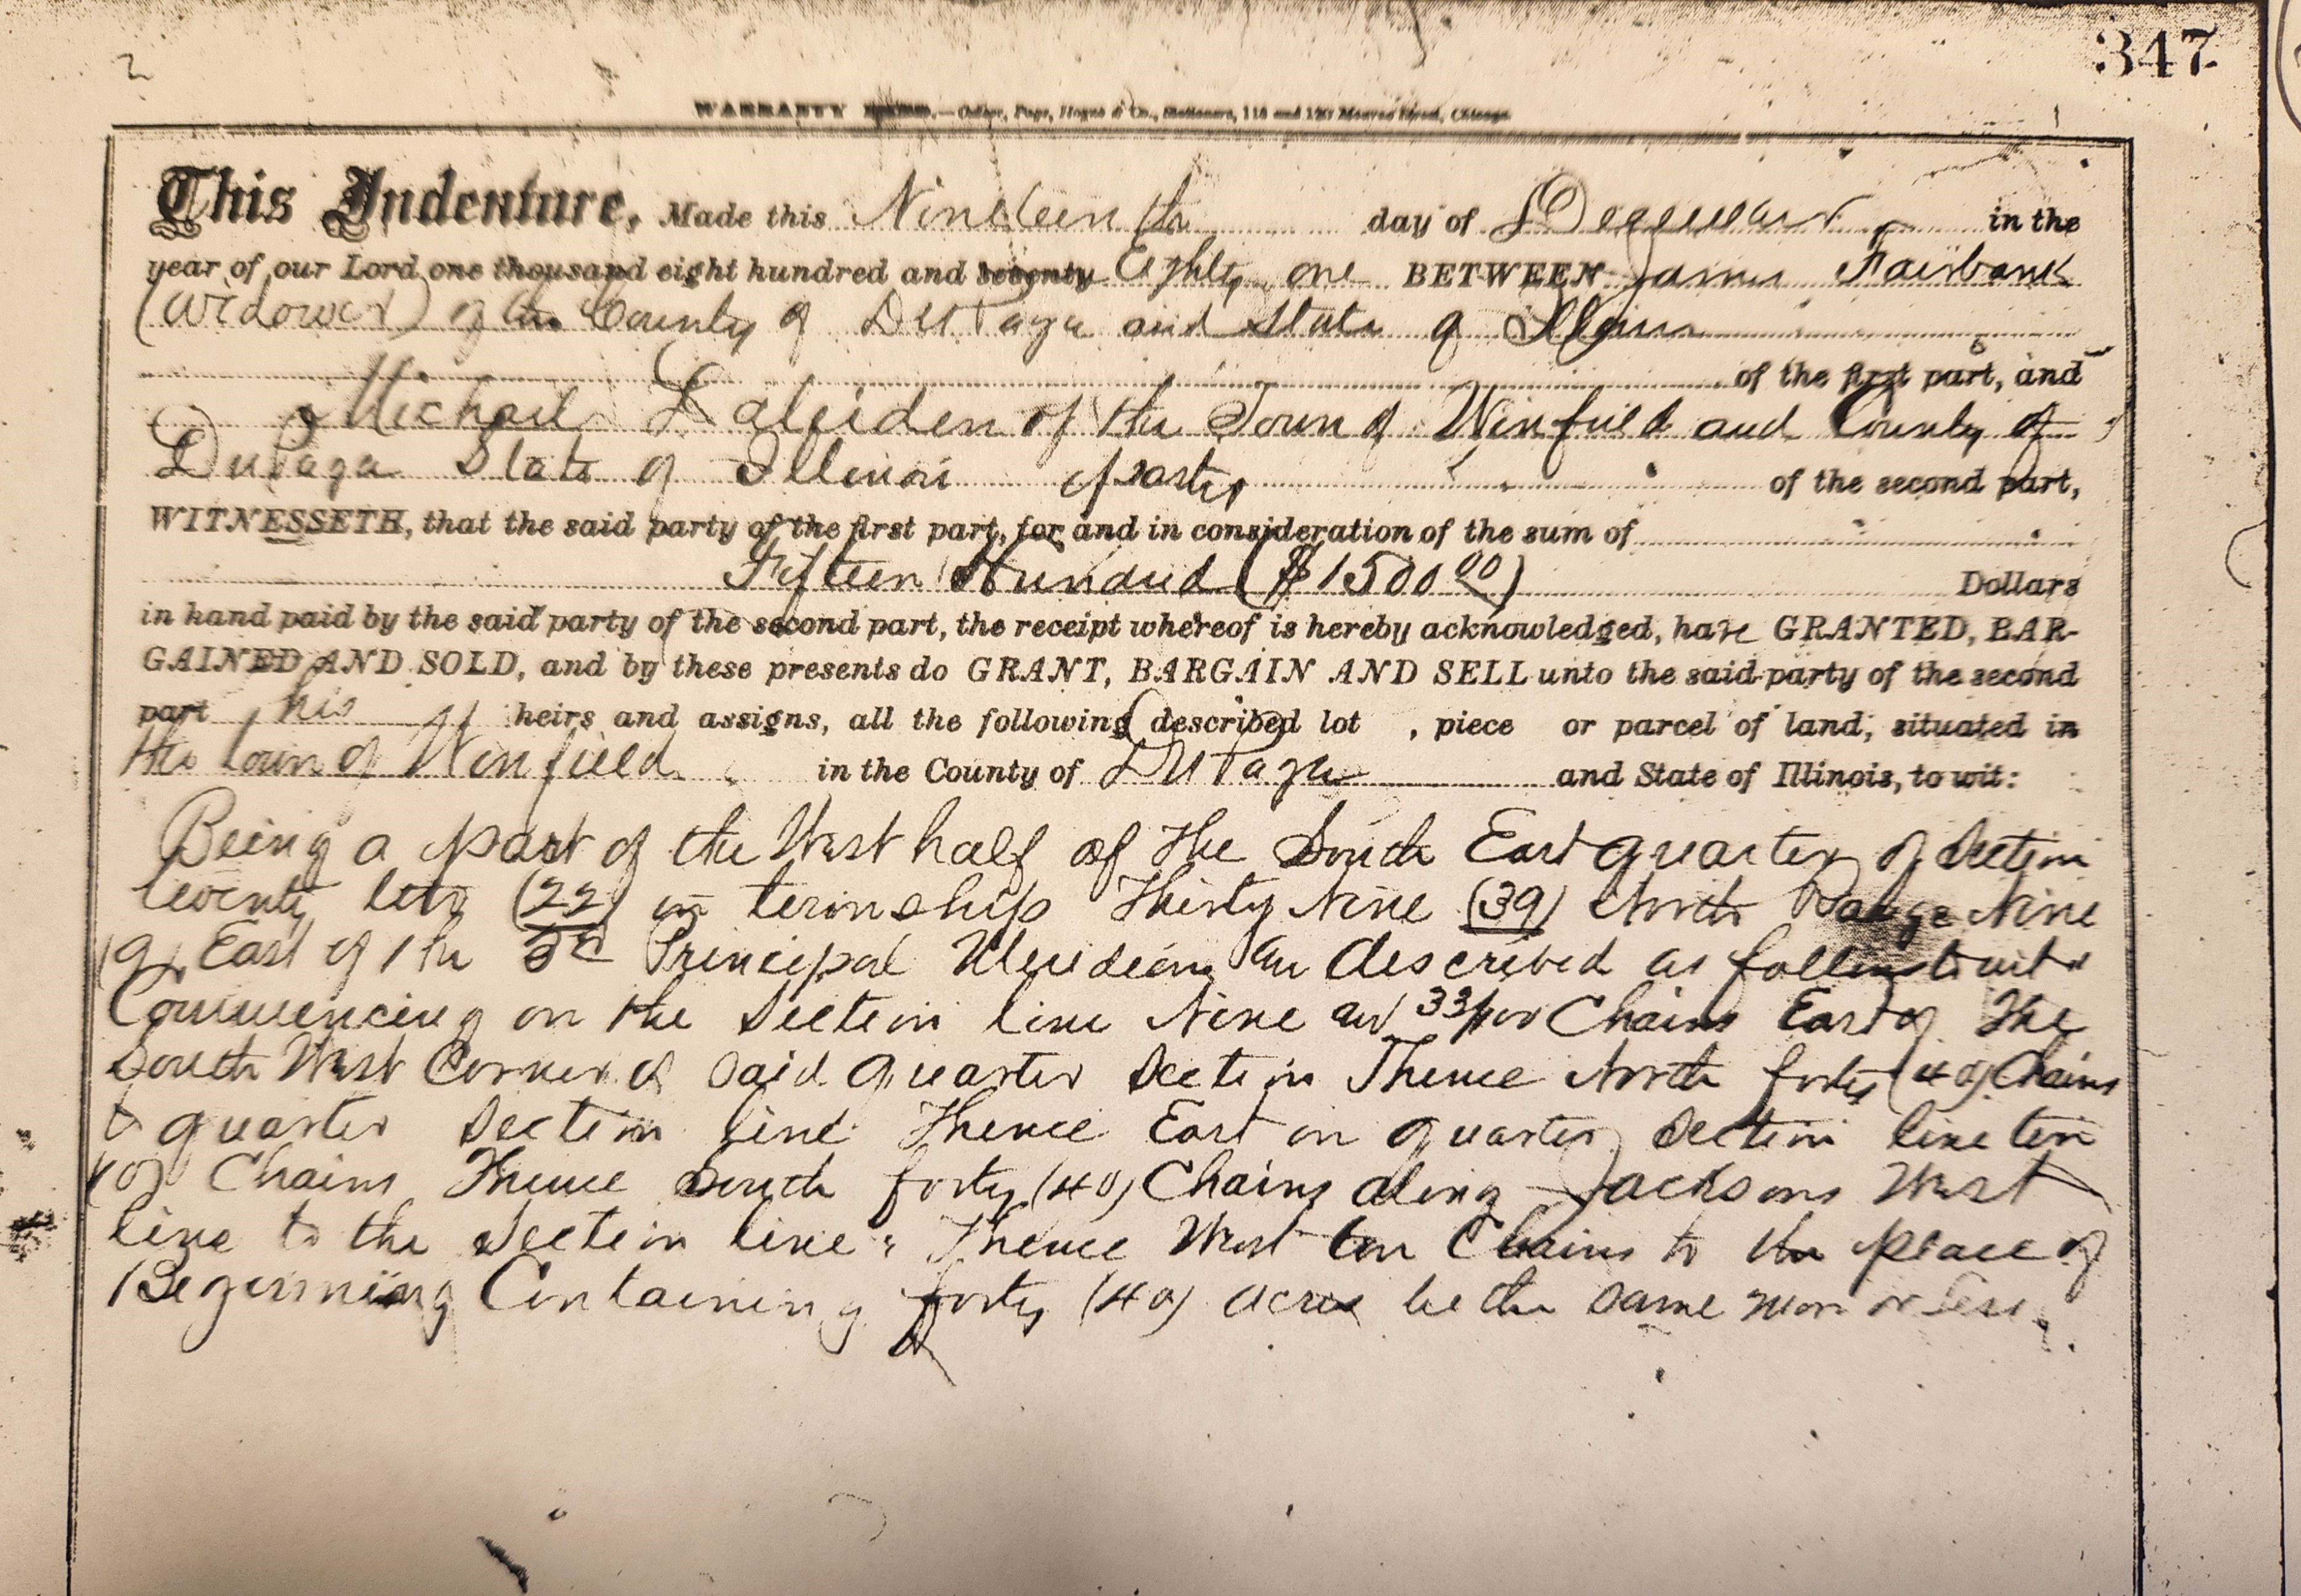 2
347
WARRANTY DEED.— Page, & Co., Stationers, Monroe Street, Chicago.
This Indenture, Made this Nineteenth day of December in the
year of our Lord one thousand eight hundred and seventy Eighty one BETWEEN James Fairbank
(Widower) of the County of DuPage and State of Illinois
of the first part, and
Michael Laleiden of the Town of Winfield and County of
DuPage State of Illinois party of the second part,
WITNESSETH, that the said party of the first part, for and in consideration of the sum of
Fifteen Hundred ($1500 00) Dollars
in hand paid by the said party of the second part, the receipt whereof is hereby acknowledged, have GRANTED, BAR-
GAINED AND SOLD, and by these presents do GRANT, BARGAIN AND SELL unto the said party of the second
part his heirs and assigns, all the following described lot , piece or parcel of land, situated in
the town of Winfield in the County of DuPage and State of Illinois, to wit:
Being a part of the West half of The South East quarter of Section
twenty two (22) in township Thirty Nine (39) North Range Nine
(9) East of the 3d Principal Meridian described as follows to wit
Commencing on the Section line Nine and 33/100 Chains East of The
South West Corner of Said quarter Section Thence North forty (40) Chains
to quarter Section line Thence East on quarter Section line ten
(10) Chains Thence South forty (40) Chains along Jacksons West
line to the Section line; Thence West ten Chains to the place of
Beginning Containing forty (40) acres be the same more or less.